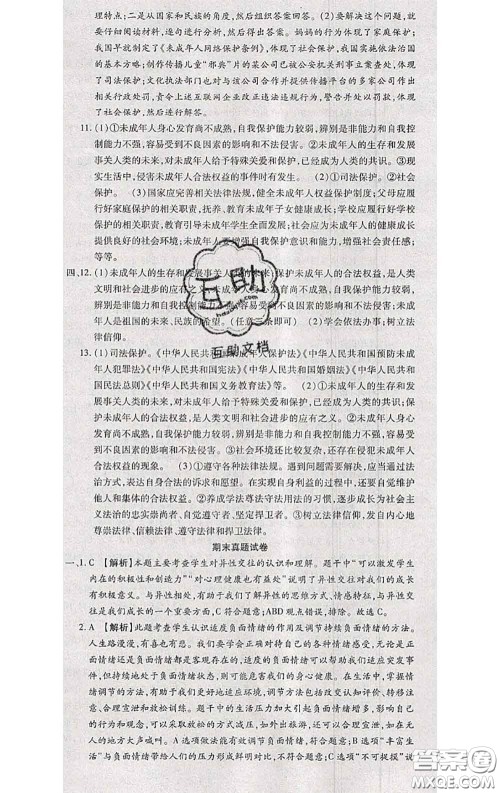 理特点;二是从国家和民族的角度,然后组织答案回答。(2)要解决这个问题,就
要仔细阅读材料,逐句进行分析,然后得出答案。妈妈的行为体现了家庭保护;
我国早就制定了《未成年人网络保护条例》,体现了社会保护,我国实施依法治国
的基本方略;创作传播儿童“邪典”片的某公司已被公安机关刑事立案查处,体现
了司法保护;文化执法部门也对与该公司合作并提供传播平台的多家公司作出
相关行政处罚,责令上述互联网企业改正违法违规行为,警告并处以罚款,体现了
然后进行解答。
11.(1)①未成年人身心发育尚不成熟,自我保护能力较弱,辨别是非能力和自我控
制能力不强,容易受到不良因素的影响和不法侵害。②未成年人的生存和发展
事关人类的未来,对未成年人给予特殊关爱和保护,已经成为人类的共识。③现
实生活中,侵害未成年人合法权益的事件时有发生。 (2)①司法保护。②社会
保护。 (3)国家应完善相关法律法规,健全未成年人权益保护制度;父母应履
行好家庭保护的相关职责,抚养、教育未成年子女健康成长;学校应履行好学校
保护的相关职责,教育引导未成年学生全面发展;社会应为未成年人的健康成长
提供良好的社会环境;未成年人要增强自我保护意识和能力,增强社会责任感;
等等。
四、(1)未成年人的生存和发展事关人类的未来。未成年人的合法权益,是人类
文明和社会进步的应有之义。未成年人身心发育尚不成熟,自我保护能力较弱,
辨别是非能力和自我控制能力不强,容易受到不良因素的影响和不法侵害。未成
年人是祖国的未来、民族的希望。(任意三条即可) (2)学会依法办事;树立法
律信仰。
13.(1)司法保护。《中华人民共和国未成年人保护法》《中华人民共和国预防未成
年人犯罪法》《中华人民共和国宪法》《中华人民共和国婚姻法》《中华人民共和
国民法总则》《中华人民共和国义务教育法》等。 (2)①未成年人的生存和发
展事关人类的未来,对未成年人给予特殊关爱和保护,已经成为人类的共识;保
护未成年人的合法权益,是人类文明和社会进步的应有之义。②未成年人身心
发育尚不成熟,自我保护能力较弱,辨别是非能力和自我控制能力不强,容易受
到不良因素的影响和不法侵害。③社会环境还比较复杂,还存在侵犯未成年人
合法权益的现象。 (3)①遵守各种法律法规。遇到问题需要解决,应当通过法
治方式,表达自身合法的诉求和愿望。在实现自身利益的过程中,还要自觉维护
他人和集体的合法权益。②养成学法尊法守法用法的习惯,③成为社会主义
法治的忠实崇尚者、自觉遵守者、坚定捍卫者。③树立法律信仰,发自内心地
尊崇法律、信赖法律、遵守法律和捍卫法律。
期末真题试卷
一、1.C 【解析】本题主要考查学生对异性交往的认识和理解。题干中“可以激发学生
内在的积极性和创造力”“对心理健康也有益处”说明了异性交往对我们的成长
有积极意义。与异性相处,有助于我们了解异性的思维方式、情感特征,与异性交
往是我们成长的一个重要方面,C符合题意;ABD观点错误,排除。故选C。
2.A 【解析】此题考查学生认识适度负面情绪的作用及调节持续负面情绪的方法。
人生路漫漫,有喜也有悲。我们每个人都会有各种各样的情绪感受,无论是正
面情绪还是负面情绪都是客观存在的,适度的负面情绪可以帮助我们适应突发事
件,但持续地处于负面情绪状态,则可能危害我们的身心健康。在生活中,掌握情
绪调节的方法,有助于我们更好地适应环境、调节情绪的方法包括改变认知评价、转移注
意、合理宣泄和放松训练。题干中的生活压力加大引起负面情绪增多,影响个人
行为和观念,可以采取放松的方式减压,如外出旅游,还可以合理宣泄和放松,如在无
人的地方大声喊叫。A选项做法能有效调节负面情绪,符合题意;B选项“丰富生
活”与负面情绪带给人们的压力形成鲜明对比,不符合题意;C选项“不可捉摸”说
互助
互助文档
答案圈
MXQE.COM